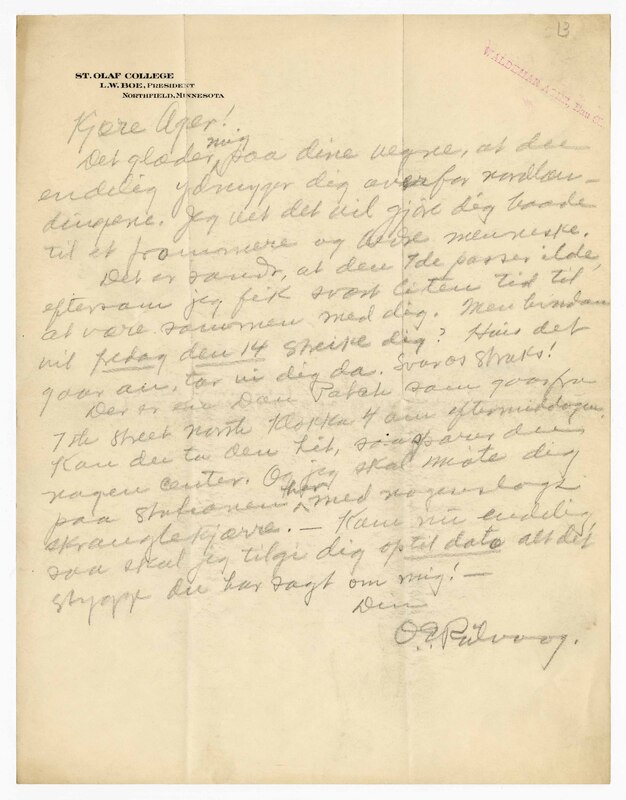 13
WALDEMAR AGER, Eau Cl
ST. OLAF COLLEGE
L. W. BOE, PRESIDENT
NORTHFIELD, MINNESOTA
Kjære Ager!
Det glæder mig paa dine vegne, at du
endelig ydmyger dig overfor nordlæn-
dingene. Jeg vet det vil gjøre dig baade
til et frommere og bedre menneske.
Det er sandt, at den 7de passer ilde,
eftersom jeg fik svært liten tid til
at være sammen med dig. Men hvordan
vil fredag den 14 the dig? Hvis det
gaar an, tar vi dig da. Svar os straks!
Der er en Dan Patch som gaar fra
7th Street North Klokka 4 om eftermiddagen.
Kan du ta den hit, saa sparer du
nogen center. Og jeg skal møte dig
paa stationen her med nogenslags
skranglekjærre. — Kom nu endelig,
saa skal jeg tilgi dig op til dato alt det
stygge du har sagt om mig! —
Din
O. E. Rölvaag.